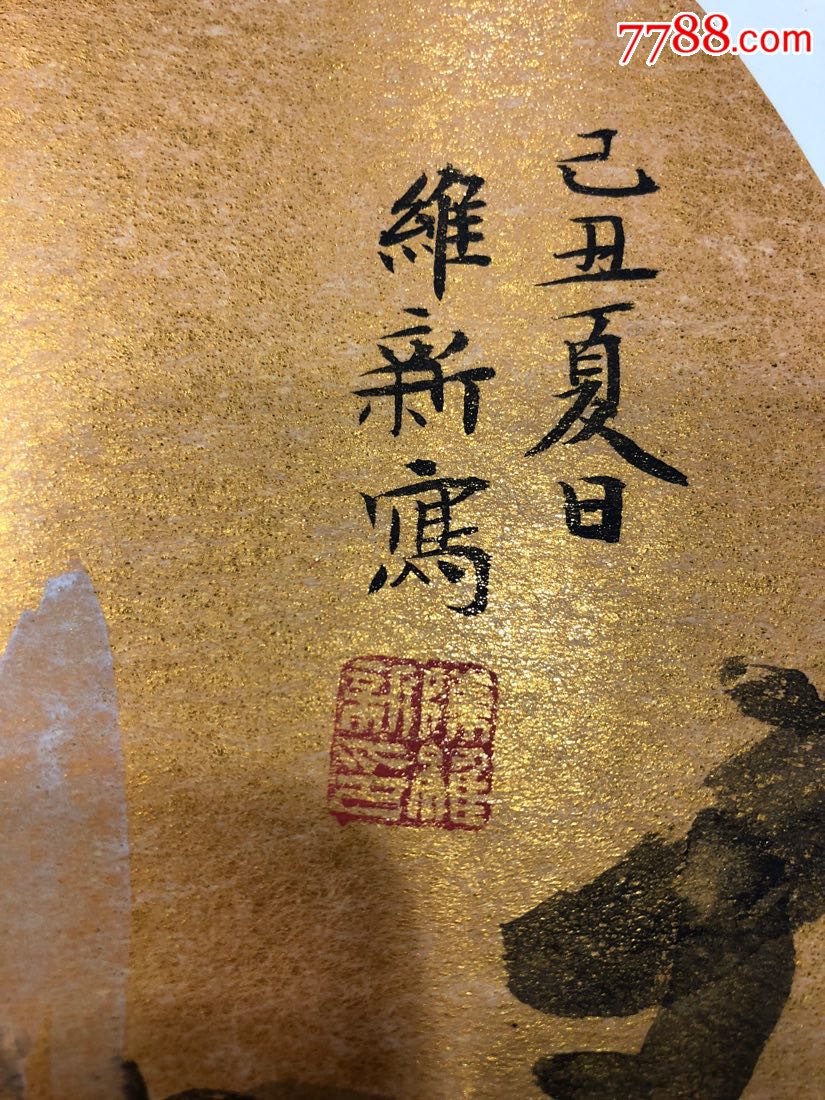 7788.com
己丑夏日
維新寫
陳維
新印